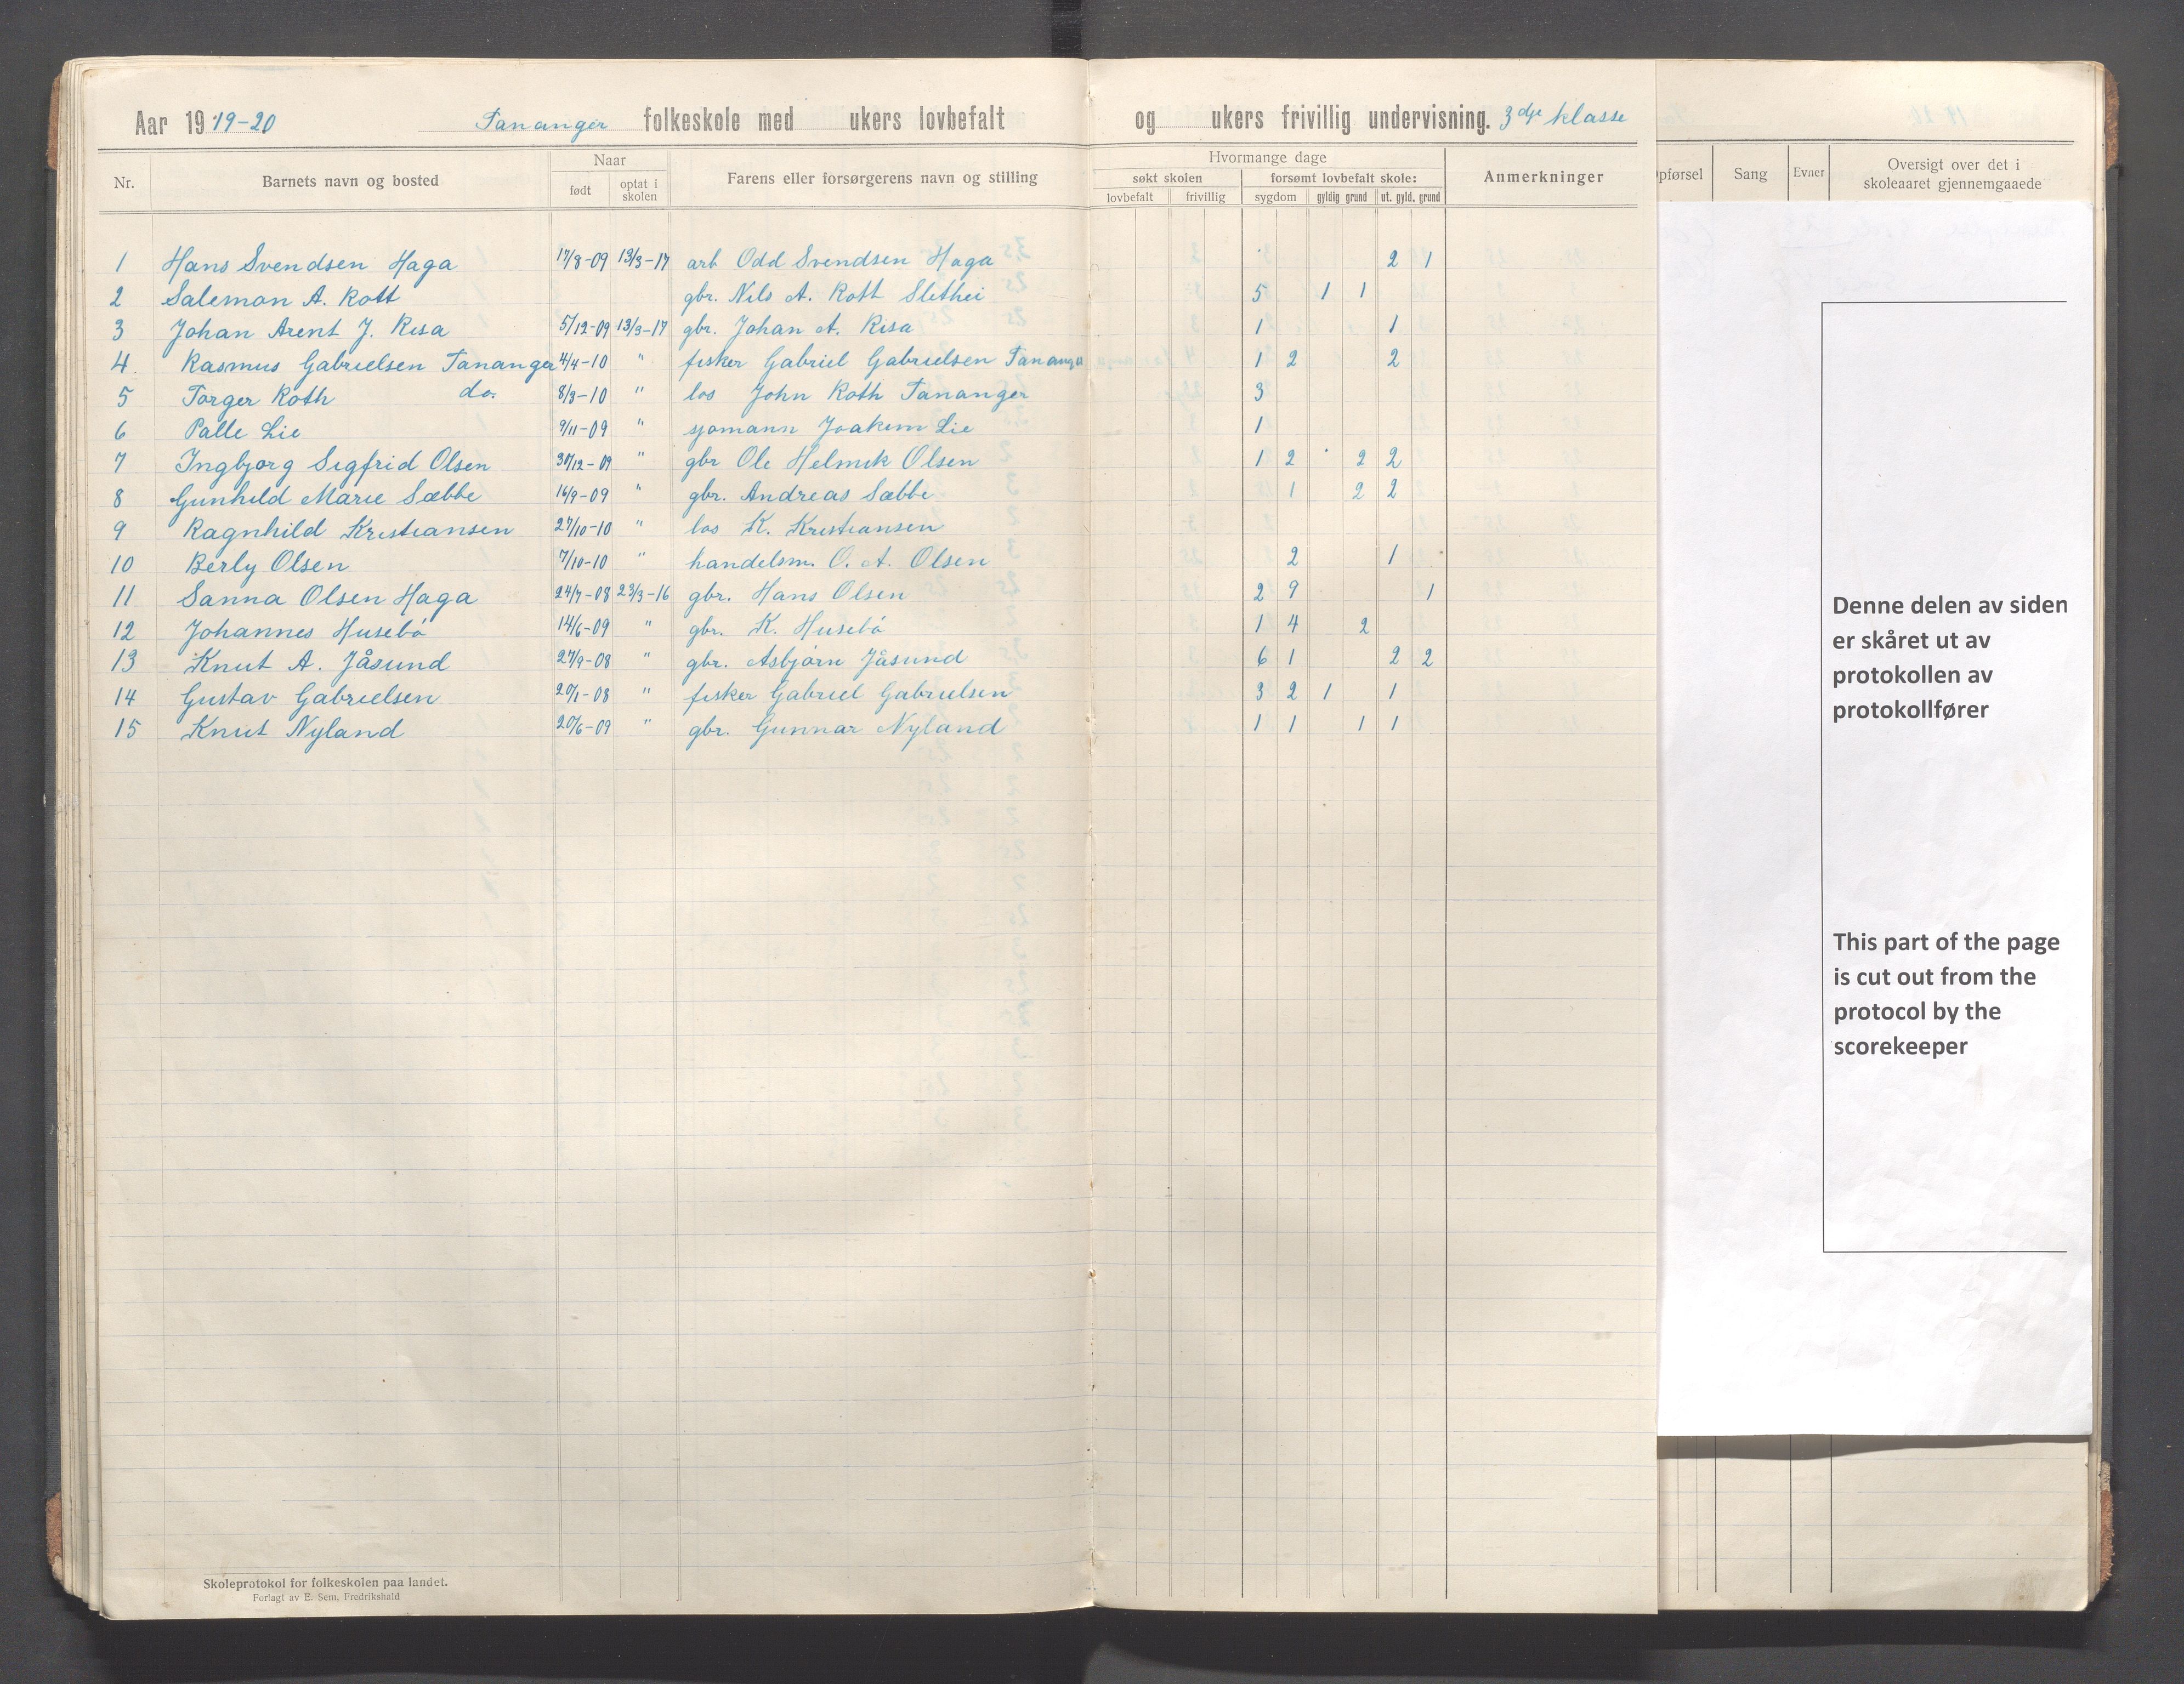 Aar 1919-20 Tananger folkeskole med ukers lovbefalt og ukers frivillig undervisning. 3dje klasse
Nr. Barnets navn og bosted Naar født optat i skolen Farens eller forsørgerens navn og stilling Hvormange dage søkt skolen lovbefalt frivillig forsømt lovbefalt skole: sygdom gyldig grund ut. gyld. grund Anmerkninger
Sang Evner Oversigt over det i skoleaaret gjennemgaaede
1 Hans Svendsen Haga 17/8-09 13/3-17 arb Odd Svendsen Haga 2 1
2 Salemon A. Rott gbr. Nils A. Rott Slethei 5 1 1
3 Johan Arent J. Risa 5/12-09 13/3-17 gbr. Johan A. Risa 1 1
4. Rasmus Gabrielsen Tananger 4/4-10 " fisker Gabriel Gabrielsen Tananger 1 2 2
5 Torger Roth do. 8/3-10 " los John Roth Tananger 3
6 Palle Lie 9/11-09 " sjømann Joakim Lie 1
7 Ingbjørg Sigfrid Olsen 30/12-09 " gbr Ole Helmik Olsen 1 2 2 2
8 Gunhild Marie Sæbbe 16/9-09 " gbr. Andreas Sæbbe 1 2 2
9 Ragnhild Kristiansen 27/10-10 " los K. Kristiansen
10 Berly Olsen 7/10-10 " handelsm. O. A. Olsen 2 1
11 Sanna Olsen Haga 24/7-08 23/3-16 gbr. Hans Olsen 2 9 1
12 Johannes Husebø 14/6-09 " gbr. K. Husebø 1 4 2
13 Knut A. Jåsund 27/9-08 " gbr. Asbjørn Jåsund 6 1 2 2
14 Gustav Gabrielsen 20/1-08 " fisker Gabriel Gabrielsen 3 2 1 1
15 Knut Nyland 20/6-09 " gbr. Gunnar Nyland 1 1 1 1
Denne delen av siden
er skåret ut av
protokollen av
protokollfører
This part of the page
is cut out from the
protocol by the
scorekeeper
Skoleprotokol for folkeskolen paa landet.
Forlagt av E. Sem, Fredrikshald